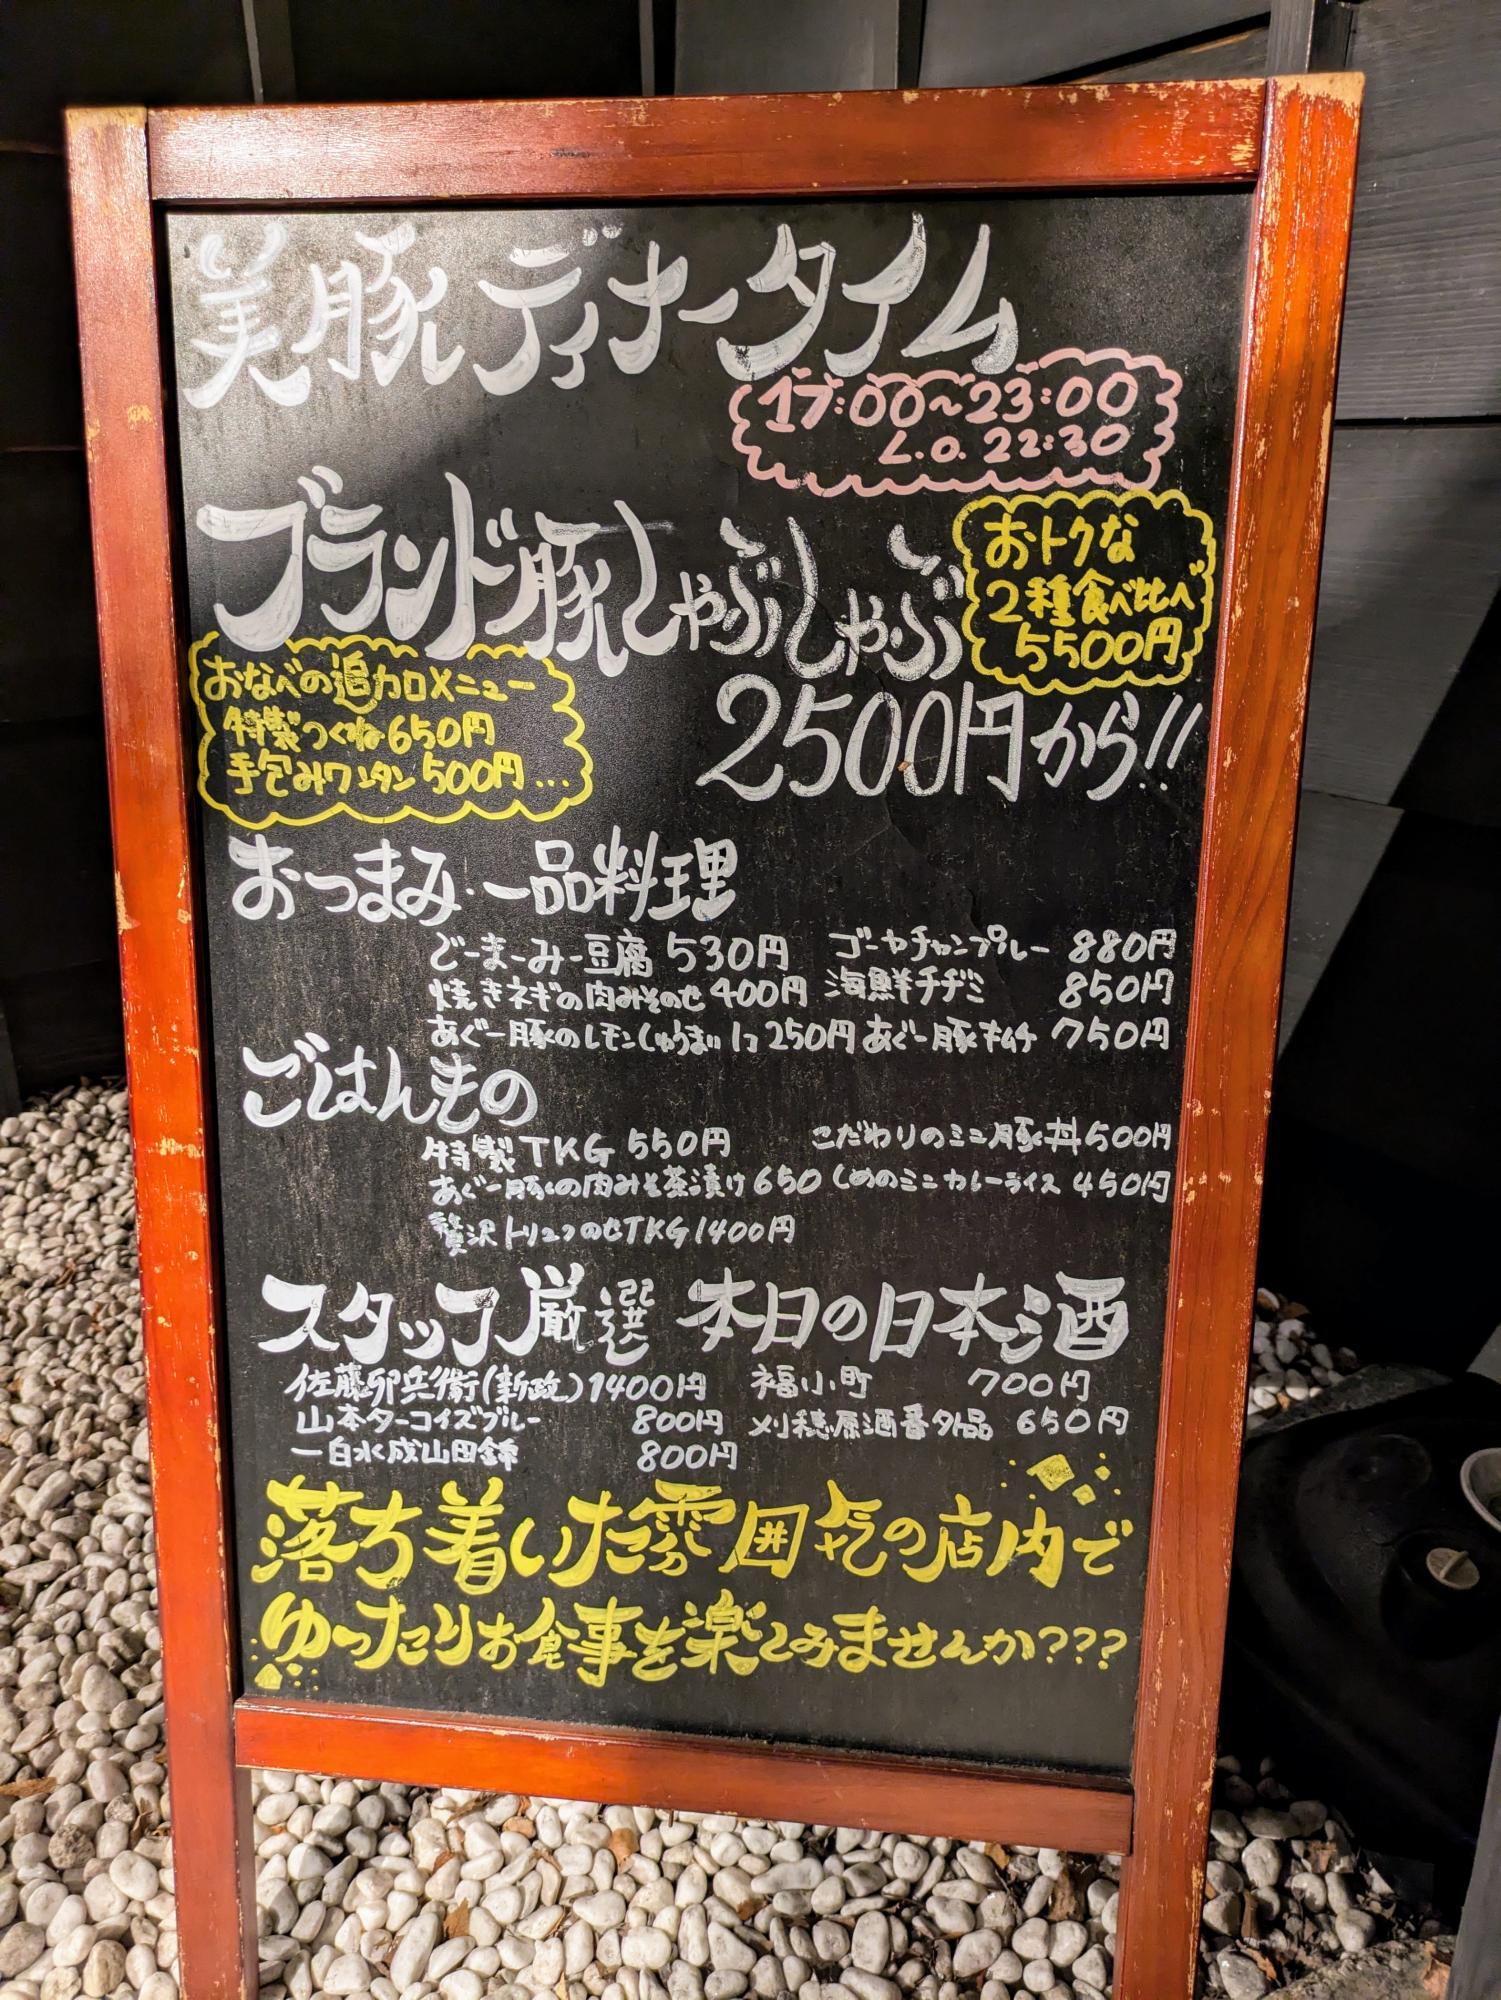 美豚ディナータイム
17:00〜23:00
L.O. 22:30
ブランド豚しゃぶしゃぶ
おトクな
2種食べ比べ
5500円
2500円から!!
おなべの追加メニュー
特製つくね650円
手包みワンタン500円...
おつまみ・一品料理
じーまーみー豆腐 530円 ゴーヤチャンプルー 880円
焼きネギの肉みそのせ 400円 海鮮チヂミ 850円
あぐー豚のレモンしゅうまい 1コ 250円 あぐー豚キムチ 750円
ごはんもの
特製TKG 550円 こだわりのミニ豚丼500円
あぐー豚の肉みそ茶漬け650 〆のミニカレーライス 450円
贅沢トリュフのせTKG1400円
スタッフ厳選 本日の日本酒
佐藤卯兵衛(新政)1400円 福小町 700円
山本ターコイズブルー 800円 刈穂原酒番外品 650円
一白水成山田錦 800円
落ち着いた雰囲気の店内で
ゆったりお食事を楽しみませんか???